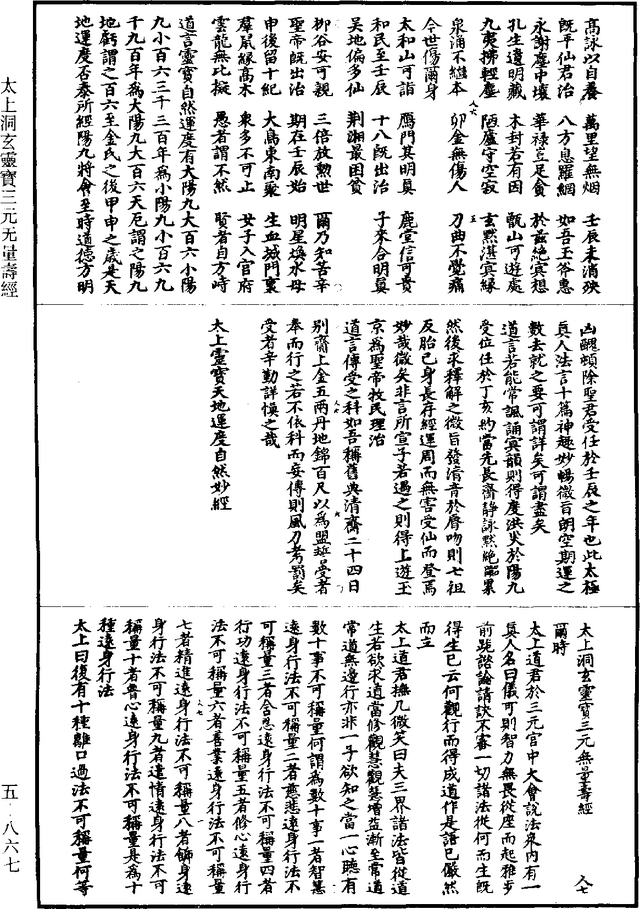 高詠以自養 萬里望無烟 壬辰未消殃
既平仙君治 八方思羅網 如吾玉筞惠
永謝塵中壤 華祿豈足貪 於兹絕冥想
孔生遺明藏 木封若有因 甑山可遊處
九夷拂輕塵 陋廬守空寂 玄默湛冥緣
泉涌不繼本 卯金無傷人 刀曲不覺痛
今世傷爾身
太和山可詣 鴈門其明真 鹿堂信可貴
和民至壬辰 十八既出治 子來合明真
吳地偏多仙 荆湖最困貧
柳谷安可親 三倍放勲世 爾乃知苦辛
聖帝既出治 期在壬辰始 明星煥水母
申後留十紀 大鳥東南聚 生血城門裏
羣鼠緣高木 衆多不可止 女子入官府
雲龍無比擬 愚者謂不然 賢者自方峙
道言靈寶自然運度有大陽九大百六小陽
九小百六三千三百年為小陽九小百六九
千九百年為大陽九大百六天厄謂之陽九
地虧謂之百六至金氏之後甲申之歲是天
地運度否泰所經陽九將會至時道德方明
凶醜頓除聖君受任於壬辰之年也此太極
真人法言十篇神趣妙暢微旨朗空期運之
數去就之要可謂詳矣可謂盡矣
道言若能常諷誦寘韻則得度洪災於陽九
受位任於丁亥約當先長齋靜詠黙絕囂累
然後求釋解之微旨發清音於脣吻則七祖
反胎已身長存經運周而無害受仙而登焉
妙哉微矣非言所宣子若遇之則得上遊玉
京為聖帝牧民理治
道言傳受之科如吾稱舊典清齋二十四日
別齎上金五兩丹地錦百尺以為盟誓受者
奉而行之若不依科而妄傳則風刀考罰矣
受者辛勤詳慎之哉
太上靈寶天地運度自然妙經
太上洞玄靈寶三元無量壽經
爾時
太上道君於三元宫中大會說法衆內有一
真人名曰儀可則智力無畏從座而起雅步
前跪諮論請訣不審一切諸法從何而生既
得生已云何觀行而得成道作是語已儼然
而立
太上道君撫几微笑曰夫三界諸法皆從道
生若欲求道當修觀慧觀慧增益漸至常道
常道無邊行亦非一子欲知之當一心聽有
數十事不可稱量何謂為數十事一者智慧
遠身行法不可稱量二者慈悲遠身行法不
可稱量三者含忍遠身行法不可稱量四者
行功遠身行法不可稱量五者修心遠身行
法不可稱量六者善業遠身行法不可稱量
七者精進遠身行法不可稱量八者飾身遠
身行法不可稱量九者遣情遠身行法不可
稱量十者普心遠身行法不可稱量是為十
種遠身行法
太上曰復有十種離口過法不可稱量何等
太上洞玄靈寶三元无量壽經
五·八六七